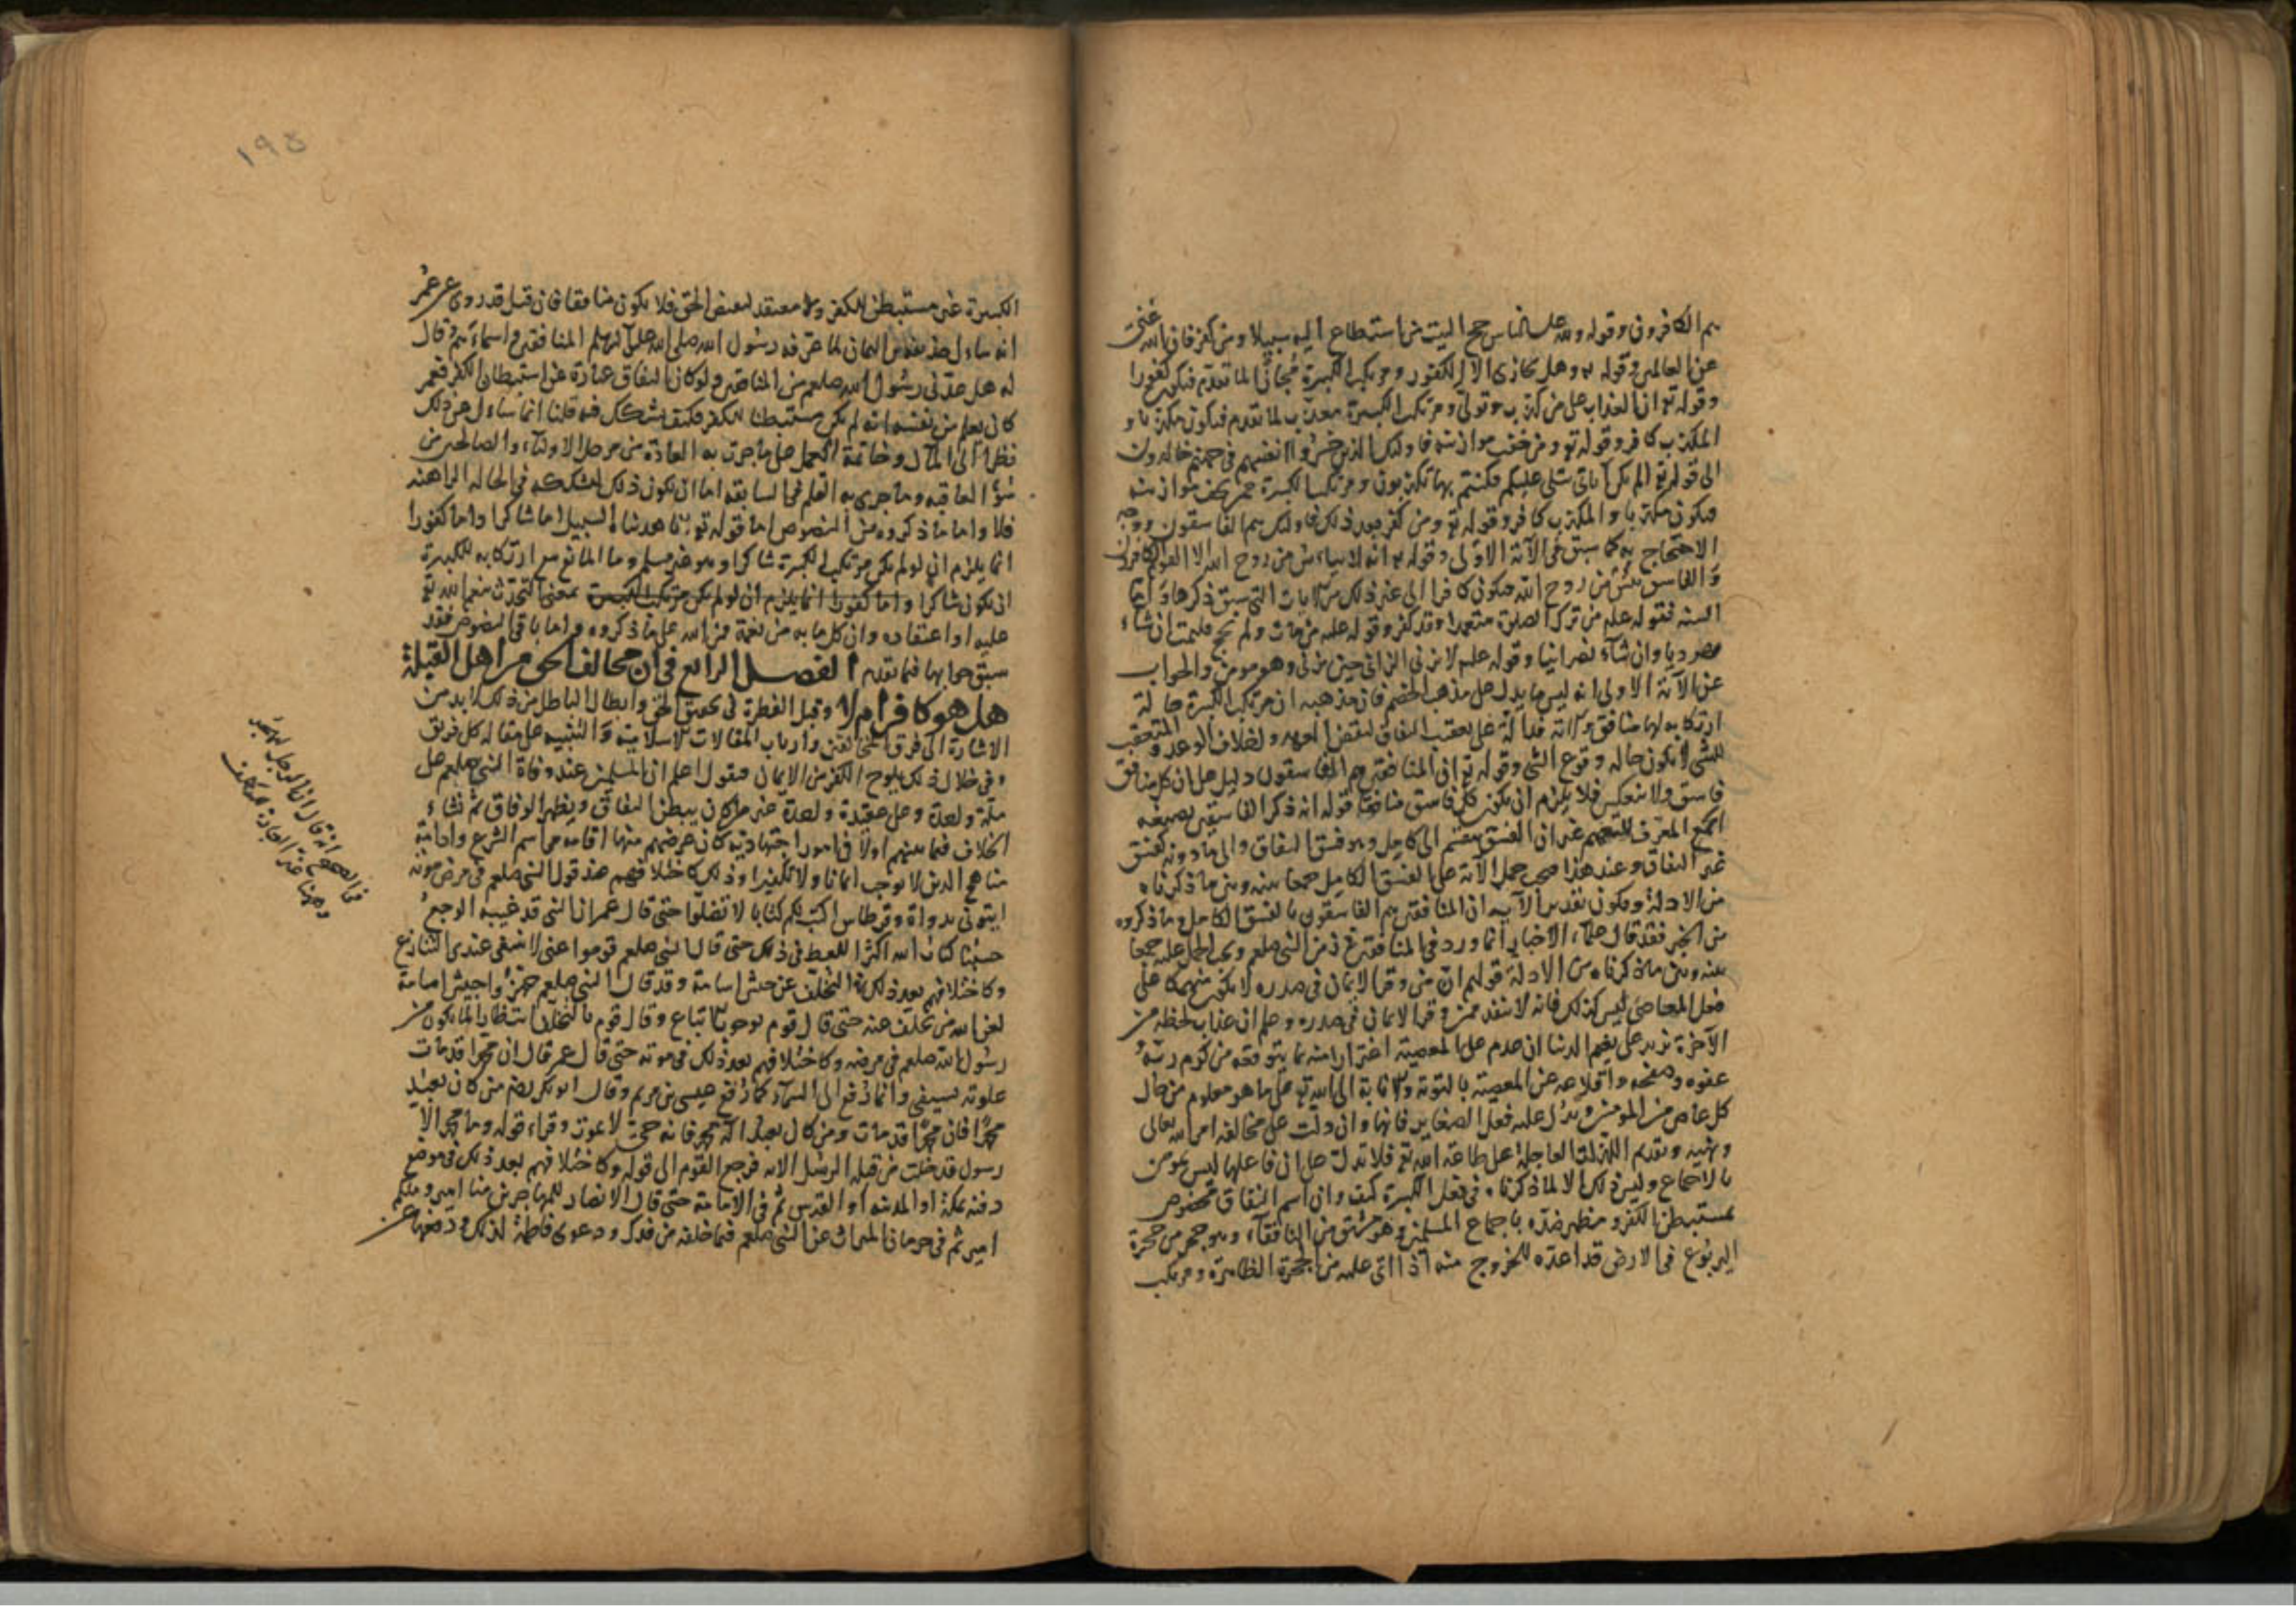 هم الكافرون وقوله ولله على الناس حج البيت من استطاع اليه سبيلا ومن كفر فان الله غنى
عن العالمين وقوله تع وهل نجازى الا الكفور ومرتكب الكبيرة مجازى لما تقدم فيكون كفورا
وقوله تع ان العذاب على من كذب وتولى ومرتكب الكبيرة معذب لما تقدم فيكون مكذبا و
المكذب كافر وقوله تع ومن خفت موازينه فاولئك الذين خسروا انفسهم فى جهنم خالدون
الى قوله تع الم تكن اياتى تتلى عليكم فكنتم بها تكذبون ومرتكب الكبيرة ممن تخف موازينه
فيكون مكذبا والمكذب كافر وقوله تع ومن كفر بعد ذلك فاولئك هم الفاسقون ووجه
الاحتجاج به كما سبق فى الآية الاولى وقوله تع انه لا ييأس من روح الله الا القوم الكافرون
والفاسق يئس من روح الله فيكون كافرا الى غير ذلك من الايات التى سبق ذكرها واما
السنة فقوله علم من ترك الصلوة متعمدا فقد كفر وقوله علم من مات ولم يحج فليمت ان شاء
يهوديا وان شاء نصرانيا وقوله علم لا يزنى الزانى حين يزنى وهو مومن والجواب
عن الآية الاولى انه ليس ما يدل على مذهب الخصم فان مذهبه ان مرتكب الكبيرة حالة
ارتكابه لها منافق والاية فدالة على تعقب النفاق لنقض العهد ولخلاف الوعد والمتعقب
للشى لا يكون حالة وقوع الشى وقوله تع ان المنافقين هم الفاسقون دليل على ان كل منافق
فاسق ولا ينعكس فلا يلزم ان يكون كل فاسق منافقا قوله انه ذكر الفاسقين بصيغة
الجمع المعرف للتعميم غير ان الفسق منقسم الى كامل وهو فسق النفاق والى ما دونه كفسق
غير النفاق وعند هذا صح حمل الآية على الفسق الكامل جمعا بينه وبين ما ذكرناه
من الادلة ويكون تقدير الآية ان المنافقين هم الفاسقون بالفسق الكامل وما ذكروه
من الخبر فقد قال علماء الاخبار انما ورد فى المنافقين فى زمن النبى صلعم ويجب الحمل عليه جمعا
بينه وبين ما ذكرناه من الادلة قولهم ان من وقر الايمان فى صدره لا يكون منهمكا على
فعل المعاصى ليس كذلك فانه لا يبعد ممن وقر الايمان فى صدره وعلم ان عذاب لحظة من
الآخرة يزيد على نعيم الدنيا ان يقدم على المعصية اغترارا منه بما يتوقعه من كرم ربه
عفوه وصفحه واقلاعه عن المعصية بالتوبة والانابة الى الله تع على ما هو معلوم من حال
كل عاص من المومنين ويدل عليه فعل الصغاير فانها وان دلت على مخالفة امر الله تعالى
ونهيه وتقديم اللذات العاجلة على طاعة الله تع فلا تدل على ان فاعلها ليس بمومن
بالاجماع وليس ذلك الا لما ذكرناه فى فعل الكبيرة كيف وان اسم النفاق مخصوص
بمستبطن الكفر ومظهر ضده باجماع المسلمين وهو مشتق من النافقاء وهو جحر من جحرة
اليربوع فى الارض قد اعده للخروج منه اذا اتى عليه من الجحرة الظاهرة ومرتكب
١٩٥
الكبيرة غير مستبطن للكفر ولا معتقد لنقيض الحق فلا يكون منافقا فان قيل قد روى عن عمر
انه سأل حذيفة بن اليمان لما عرفه رسول الله صلى الله عليه وسلم المنافقين واسماءهم قال
له هل عدنى رسول الله صلعم من المنافقين ولو كان النفاق عبارة عن استبطان الكفر فعمر
كان يعلم من نفسه انه لم يكن مستبطنا للكفر فكيف يشكك فيه قلنا انما سأل عن ذلك
نظرا الى المآل وخاتمة العمل على ما جرت به العادة من وجل الاولياء والصالحين من
سوء العاقبة وما جرى به القلم فى السابقة اما ان يكون ذلك لشككه فى الحالة الراهنة
فلا واما ما ذكروه من النصوص اما قوله تع انا هديناه السبيل اما شاكرا واما كفورا
انما يلزم ان لو لم يكن مرتكب الكبيرة شاكرا وهو غير مسلم وما المانع مع ارتكابه للكبيرة
ان يكون شاكرا واما كفورا انما يلزم ان لو لم يكن مرتكب الكبيرة بمعنى التحدث بنعم الله تع
عليه او اعتقاده وان كل ما به من نعمة فمن الله على ما ذكروه واما باقى النصوص فقد
سبق جوابها فيما تقدم الفصل الرابع فى ان مخالف الحق من اهل القبلة
هل هو كافر ام لا وقبل النظر فى تحقيق الحق وابطال الباطل من ذلك لا بد من
الاشارة الى فرق المخالفين وارباب المقالات الاسلامية والتنبيه على مقالة كل فريق
وفى خلال ذلك يلوح الكفر من الايمان فنقول اعلم ان المسلمين عند وفاة النبى صلعم على
ملة واحدة وعلى عقيدة واحدة غير من كان يبطن النفاق ويظهر الوفاق ثم نشاء
الخلاف فيما بينهم اولا فى امور اجتهادية كان غرضهم منها اقامة مراسم الشرع وادامة
مناهج الدين لا يوجب ايمانا ولا تكفيرا وذلك كاختلافهم عند قول النبى صلعم فى مرض موته
ايتونى بدواة وقرطاس اكتب لكم كتابا لا تضلوا حتى قال عمر ان النبى قد غلبه الوجع
حسبنا كتاب الله اكثر اللغط فى ذلك حتى قال النبى صلعم قوموا عنى لا ينبغى عندى التنازع
وكاختلافهم بعد ذلك فى التخلف عن جيش اسامة وقد قال النبى صلعم جهزوا جيش اسامة
لعن الله من تخلف عنه حتى قال قوم بوجوب الاتباع وقال قوم بالتخلف انتظارا لما يكون من
رسول الله صلعم فى مرضه وكاختلافهم بعد ذلك فى موته حتى قال عمر من قال ان محمدا قد مات
علوته بسيفى وانما رفع الى السماء كما رفع عيسى بن مريم وقال ابو بكر رضه من كان يعبد
محمدا فان محمدا قد مات ومن كان يعبد اله محمد فانه حى لا يموت وقراء قوله وما محمد الا
رسول قد خلت من قبله الرسل الاية فرجع القوم الى قوله وكاختلافهم بعد ذلك فى موضع
دفنه بمكة او المدينه او القدس ثم فى الامامة حتى قال الانصار للمهاجرين منا امير ومنكم
امير ثم فى حرمان الميراث عن النبى صلعم فيما خلفه من فدك ودعوى فاطمة لذلك ودفعها عن